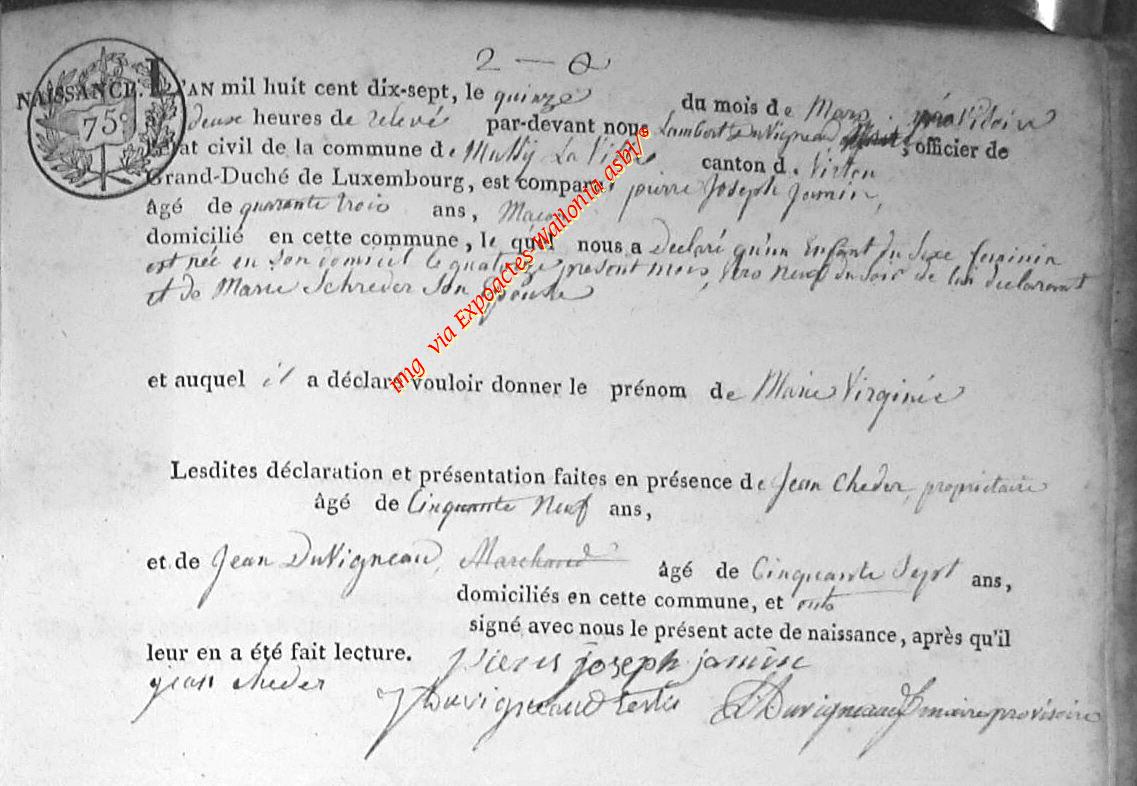 2 — 0
NAISSANCE. L'AN mil huit cent dix-sept, le quinze du mois de Mars provisoire
75c deux heures de relevé par-devant nous Lambert DuVigneau, officier de
l'état civil de la commune de Mussy La Ville canton de Virton
Grand-Duché de Luxembourg, est comparu pierre Joseph Jamin,
âgé de quarante trois ans, Maçon
domicilié en cette commune, le quel nous a declaré qu'un Enfant du Sexe feminin
est née en Son domicil le quatorze present mois, neuf du Soir de lui declarant
et de Marie Schreder Son Epouse
et auquel il a déclaré vouloir donner le prénom de Marie Virginie
Lesdites déclaration et présentation faites en présence de Jean Cheder, proprietaire
âgé de Cinquante Neuf ans,
et de Jean DuVigneau, Marchand âgé de Cinquante Sept ans,
domiciliés en cette commune, et ont
signé avec nous le présent acte de naissance, après qu'il
leur en a été fait lecture. pierre joseph jamin
jean cheder J Duvigneaud L Duvigneau maire provisoire
img via Expoactes wallonia asbl/©